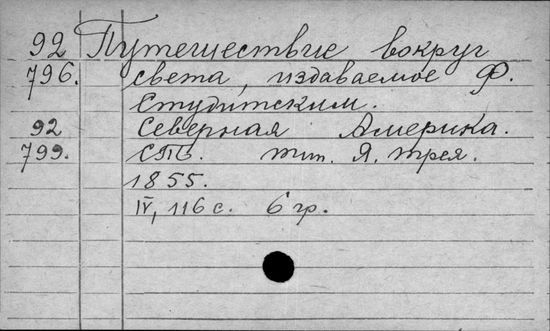 92 Путешествие вокруг
796. света, издаваемое Ф.
Студитским.
92 Северная Америка.
799. СПб. тип. Я. Трея.
1855.
IV, 116 с. 6 гр.